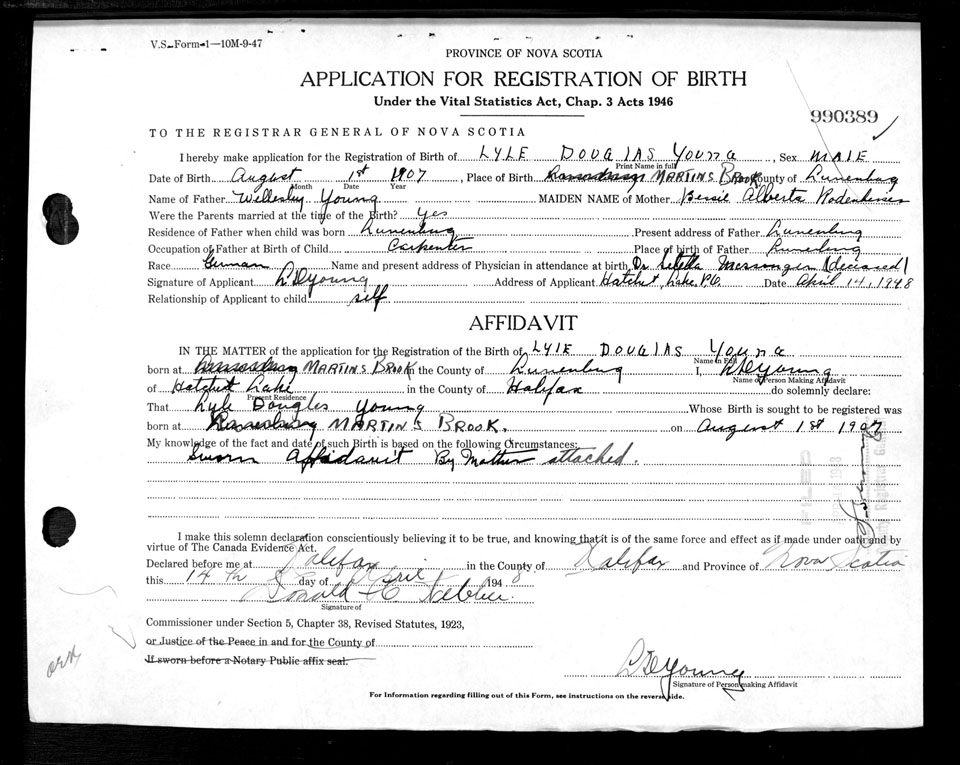 V.S.-Form-1—10M-9-47
PROVINCE OF NOVA SCOTIA
APPLICATION FOR REGISTRATION OF BIRTH
Under the Vital Statistics Act, Chap. 3 Acts 1946
990389
TO THE REGISTRAR GENERAL OF NOVA SCOTIA
I hereby make application for the Registration of Birth of LYLE DOUGLAS YOUNG, Sex MALE
Print Name in full
Date of Birth August 1st 1907, Place of Birth MARTINS BROOK County of Lunenburg
Month Date Year
Name of Father Willesley Young MAIDEN NAME of Mother Bessie Alberta Rodenhiser
Were the Parents married at the time of the Birth? yes
Residence of Father when child was born Lunenburg Present address of Father Lunenburg
Occupation of Father at Birth of Child Carpenter Place of birth of Father Lunenburg
Race German Name and present address of Physician in attendance at birth Dr Messinger (deceased)
Signature of Applicant L D Young Address of Applicant Hatchet Lake P.O. Date April 14, 1948
Relationship of Applicant to child self
AFFIDAVIT
IN THE MATTER of the application for the Registration of the Birth of LYLE DOUGLAS YOUNG
Name in Full
born at MARTINS BROOK in the County of Lunenburg I, L D Young
Name of Person Making Affidavit
of Hatchet Lake in the County of Halifax do solemnly declare:
Present Residence
That Lyle Douglas Young Whose Birth is sought to be registered was
born at MARTINS BROOK. on August 1st 1907
My knowledge of the fact and date of such Birth is based on the following Circumstances:
Sworn Affidavit By Mother attached.
I make this solemn declaration conscientiously believing it to be true, and knowing that it is of the same force and effect as if made under oath and by
virtue of The Canada Evidence Act.
Declared before me at Halifax in the County of Halifax and Province of Nova Scotia
this 14th day of April 1948.
Donald
Signature of
Commissioner under Section 5, Chapter 38, Revised Statutes, 1923,
or Justice of the Peace in and for the County of
If sworn before a Notary Public affix seal.
L D Young
Signature of Person making Affidavit
For Information regarding filling out of this Form, see instructions on the reverse side.